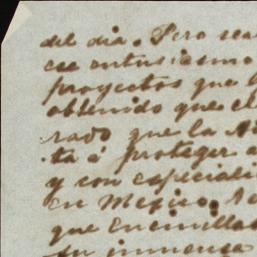 del dia. Pero sea
ese entusiasmo
proyectos que h
obtenido que el
rado que la
ta á proteger a
y con especiali
en Mexico. 
que
su inmensa